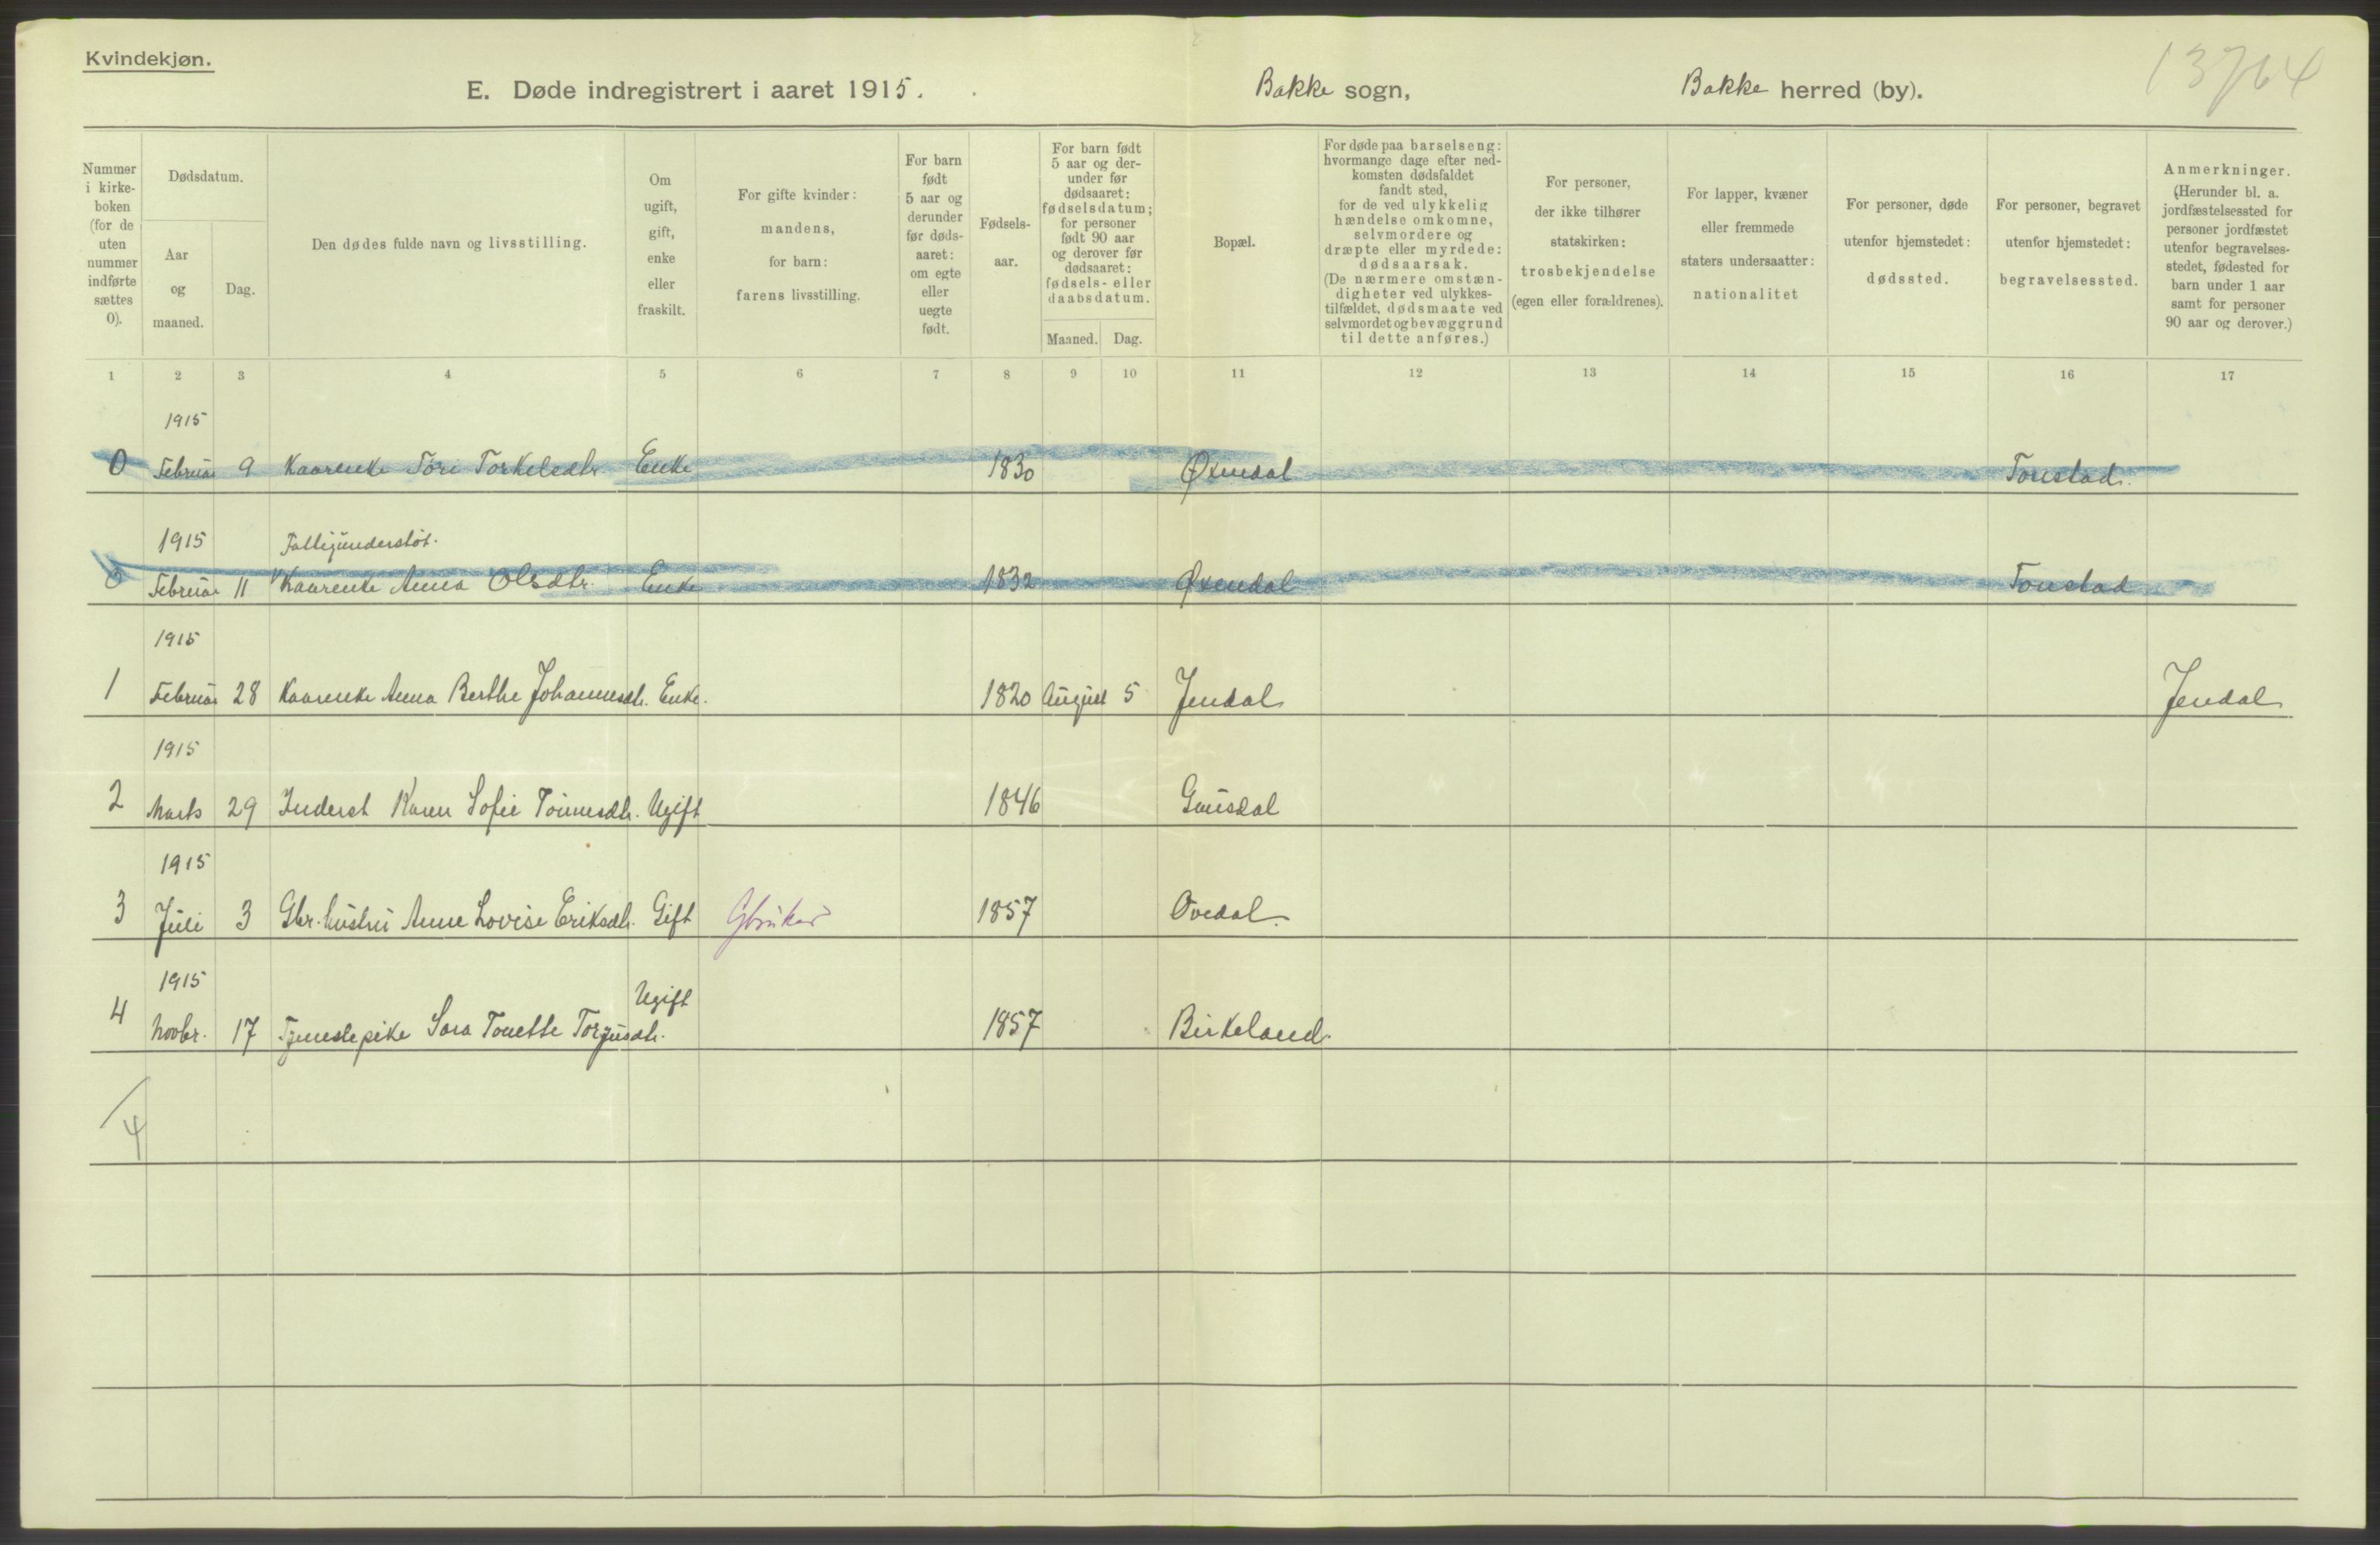 Kvindekjøn.
13764
E. Døde indregistrert i aaret 1915. Bakke sogn, Bakke herred (by).
Nummer
i kirke-
boken
(for de
uten
nummer
indførte
sættes
0).
Dødsdatum.
Aar
og
maaned.
Dag.
Den dødes fulde navn og livsstilling.
Om
ugift,
gift,
enke
eller
fraskilt.
For gifte kvinder:
mandens,
for barn:
farens livsstilling.
For barn
født
5 aar og
derunder
før døds-
aaret:
om egte
eller
uegte
født.
Fødsels-
aar.
For barn født
5 aar og der-
under før
dødsaaret:
fødselsdatum;
for personer
født 90 aar
og derover før
dødsaaret:
fødsels- eller
daabsdatum.
Maaned. Dag.
Bopæl.
For døde paa barselseng:
hvormange dage efter ned-
komsten dødsfaldet
fandt sted,
for de ved ulykkelig
hændelse omkomne,
selvmordere og
dræpte eller myrdede:
dødsaarsak.
(De nærmere omstæn-
digheter ved ulykkes-
tilfældet, dødsmaate ved
selvmordet og bevæggrund
til dette anføres.)
For personer,
der ikke tilhører
statskirken:
trosbekjendelse
(egen eller forældrenes).
For lapper, kvæner
eller fremmede
staters undersaatter:
nationalitet
For personer, døde
utenfor hjemstedet:
dødssted.
For personer, begravet
utenfor hjemstedet:
begravelsessted.
Anmerkninger.
(Herunder bl. a.
jordfæstelsessted for
personer jordfæstet
utenfor begravelses-
stedet, fødested for
barn under 1 aar
samt for personer
90 aar og derover.)
1 2 3 4 5 6 7 8 9 10 11 12 13 14 15 16 17
1915
0 Februar 9 Kaarenke Tori Torkelsdtr. Enke 1830 Øxendal Tonstad.
1915 Fattigunderstøt.
0 Februar 11 Kaarenke Anna Olsdtr. Enke 1832 Øxendal Tonstad
1915
1 Februar 28 Kaarenke Anna Berthe Johannesdtr. Enke. 1820 August 5 Jendal Jendal
1915
2 Marts 29 Inderst Karen Sofie Tönnesdtr. Ugift 1846 Gausdal
1915
3 Juli 3 Gbr. hustru Anne Lovise Eriksdtr. Gift Gbruker 1857 Ovedal.
1915 Ugift
4 Novbr. 17 Tjenestepike Sara Tonette Torjusdtr. 1857 Birkeland.
/4